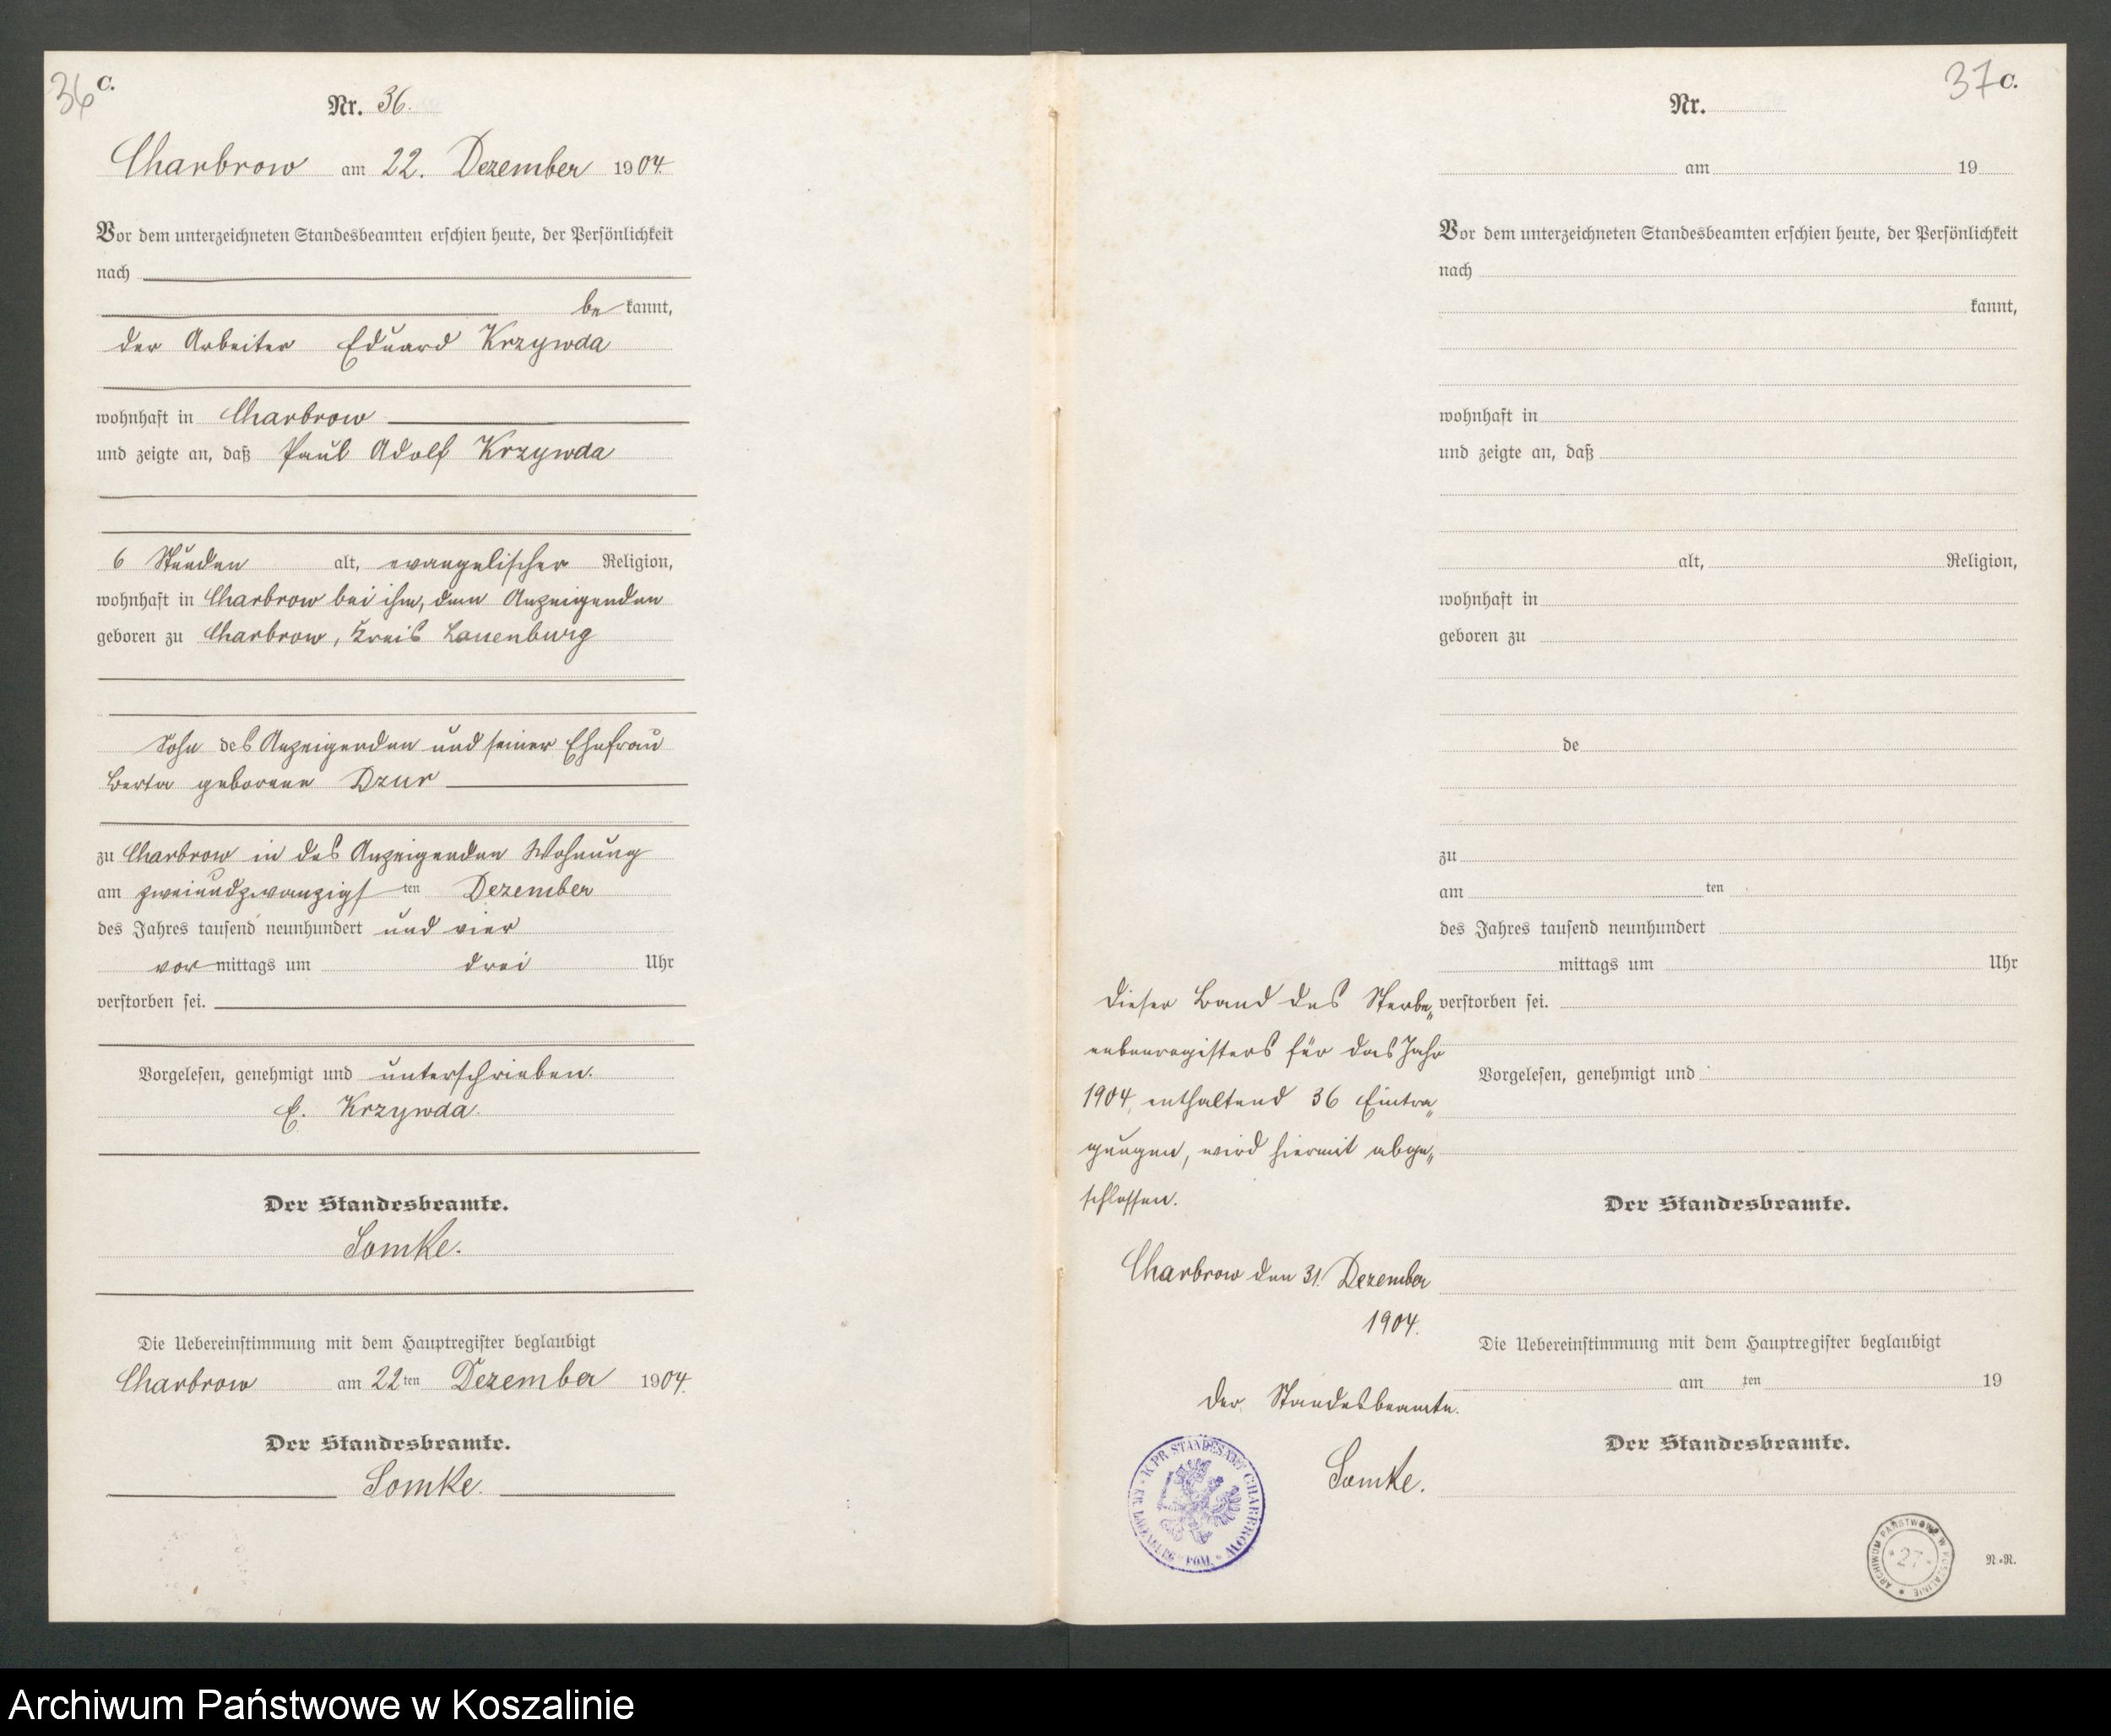 36 C.
Nr. 36.
Charbrow am 22. Dezember 1904.
Vor dem unterzeichneten Standesbeamten erschien heute, der Persönlichkeit
nach
be kannt,
der Arbeiter Eduard Krzywda
wohnhaft in Charbrow
und zeigte an, daß Paul Adolf Krzywda
6 Stunden alt, evangelischer Religion,
wohnhaft in Charbrow bei ihm, dem Anzeigenden
geboren zu Charbrow, Kreis Lauenburg
Sohn des Anzeigenden und seiner Ehefrau
Berta geborene Dzur
zu Charbrow in des Anzeigenden Wohnung
am zweiundzwanzigsten Dezember
des Jahres tausend neunhundert und vier
vor mittags um drei Uhr
verstorben sei.
Vorgelesen, genehmigt und unterschrieben.
E. Krzywda.
Der Standesbeamte.
Somke.
Die Uebereinstimmung mit dem Hauptregister beglaubigt
Charbrow am 22ten Dezember 1904.
Der Standesbeamte.
Somke.
37 C.
Nr.
am 19
Vor dem unterzeichneten Standesbeamten erschien heute, der Persönlichkeit
nach
kannt,
wohnhaft in
und zeigte an, daß
alt, Religion,
wohnhaft in
geboren zu
de
zu
am ten
des Jahres tausend neunhundert
mittags um Uhr
verstorben sei.
Vorgelesen, genehmigt und
Der Standesbeamte.
Die Uebereinstimmung mit dem Hauptregister beglaubigt
am ten 19
Der Standesbeamte.
Dieser Band des Sterbe„
nebenregisters für das Jahr
1904, enthaltend 36 Eintra„
gungen, wird hiermit abge„
schlossen.
Charbrow den 31. Dezember
1904.
Der Standesbeamte.
Somke.
K. PR. STANDESAMT CHARBROW * KR. LAUENBURG POM. *
ARCHIWUM PAŃSTWOWE W KOSZALINIE
27
N.N.
Archiwum Państwowe w Koszalinie